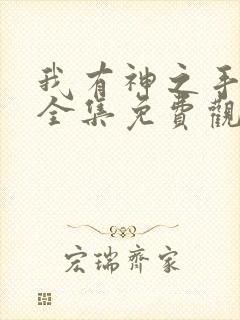 我有神之手
全集免費觀
宏瑞齊家